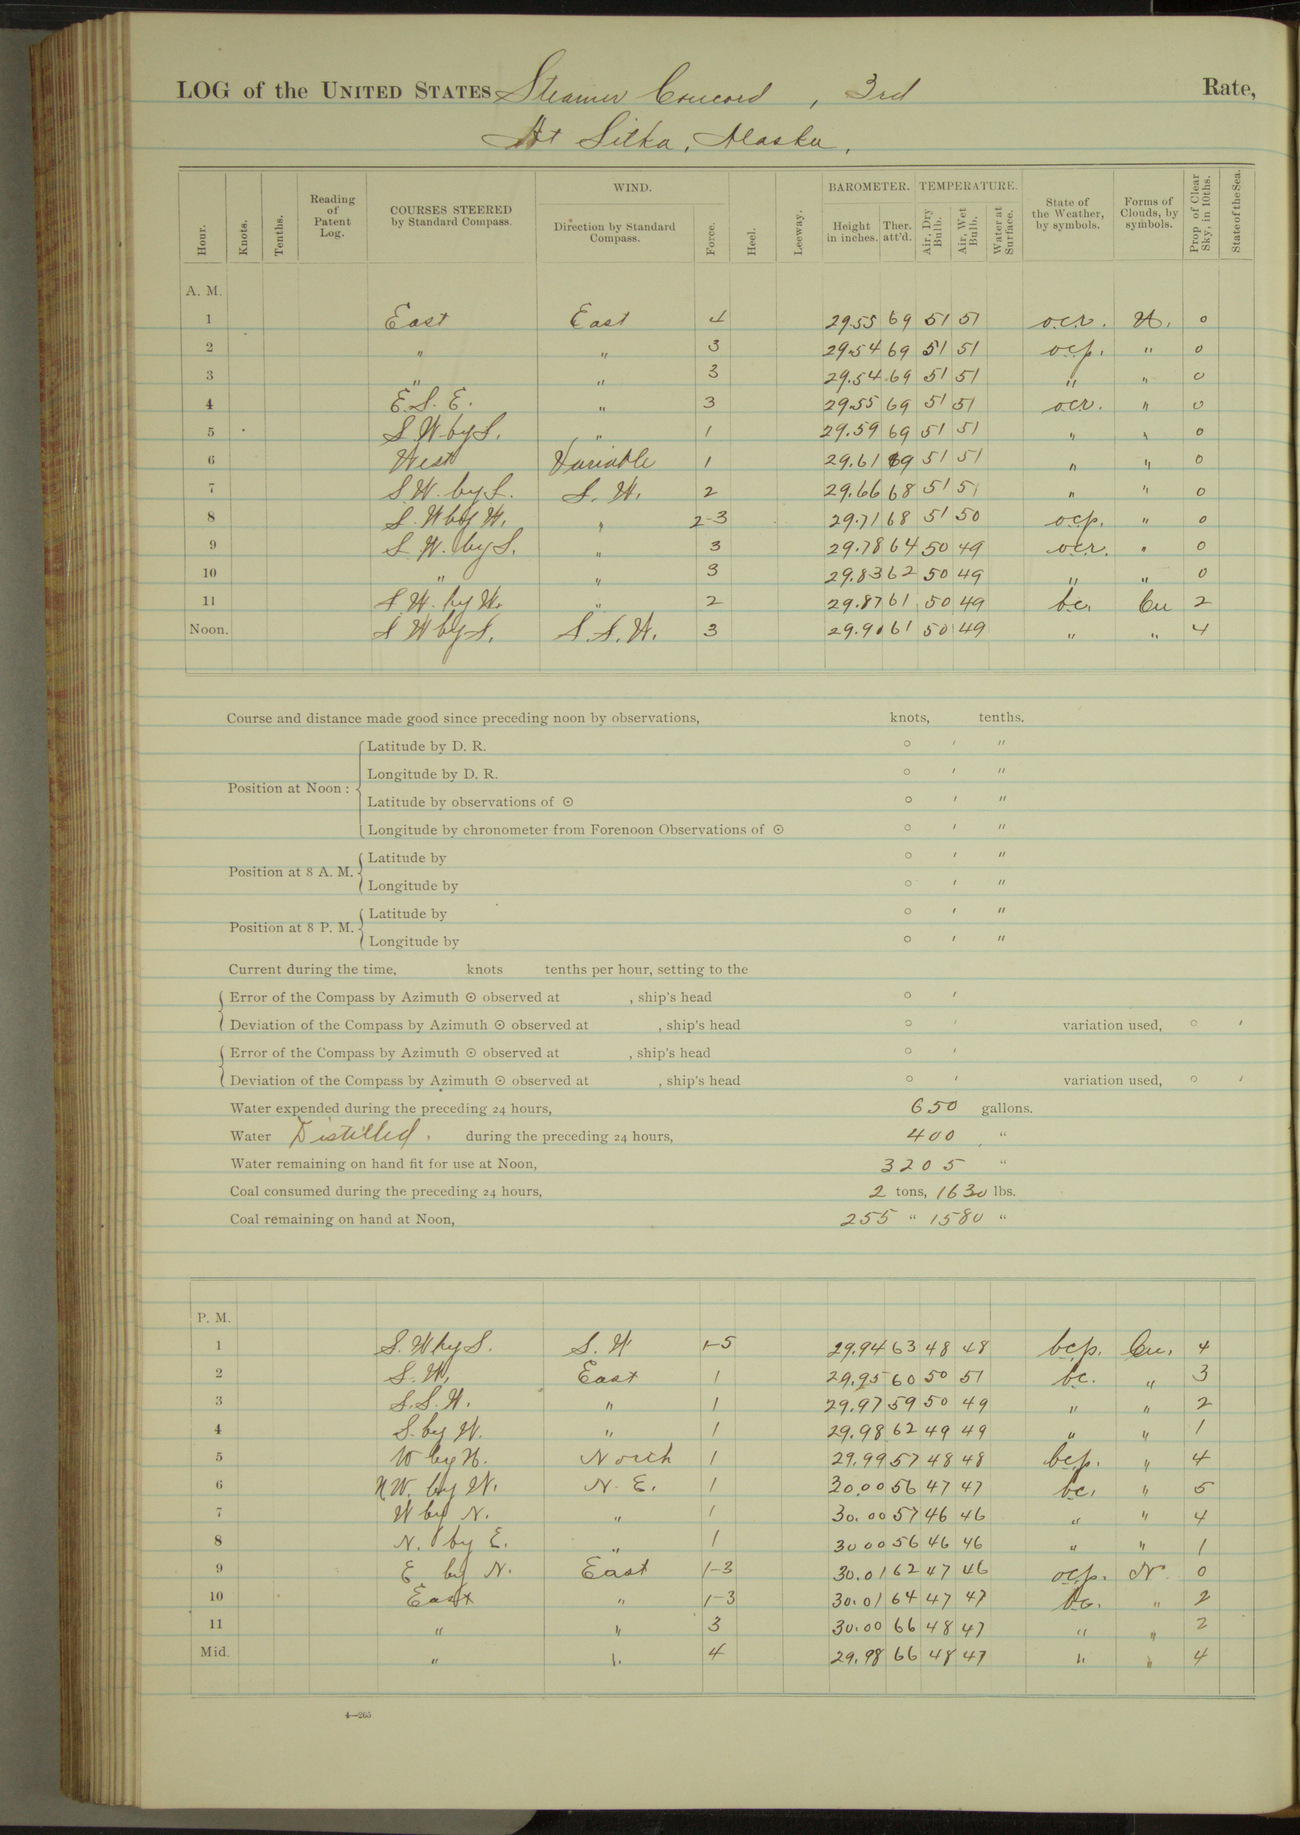 LOG of the UNITED STATES Steamer Concord, 3rd Rate,
At Sitka, Alaska,
Hour. Knots. Tenths. Reading of Patent Log. COURSES STEERED by Standard Compass. WIND. Direction by Standard Compass. Force. Heel. Leeway. BAROMETER. Height in inches. Ther. att'd. TEMPERATURE. Air, Dry Bulb. Air, Wet Bulb. Water at Surface. State of the Weather, by symbols. Forms of Clouds, by symbols. Prop of Clear Sky, in 10ths. State of the Sea.
A. M.
1 East East 4 29.55 69 51 51 o.c.r. N. 0
2 " " 3 29.54 69 51 51 o.c.p. " 0
3 " " 3 29.54 69 51 51 " " 0
4 E.S.E. " 3 29.55 69 51 51 o.c.r. " 0
5 S.W. by S. " 1 29.59 69 51 51 " " 0
6 West Variable 1 29.61 69 51 51 " " 0
7 S.W. by S. S.W. 2 29.66 68 51 51 " " 0
8 S.W by W. " 2-3 29.71 68 51 50 o.c.p. " 0
9 S.W. by S. " 3 29.78 64 50 49 o.c.r. " 0
10 " " 3 29.83 62 50 49 " " 0
11 S.W. by W. " 2 29.87 61 50 49 b.c. Cu 2
Noon. S W by S. S.S.W. 3 29.90 61 50 49 " " 4
Course and distance made good since preceding noon by observations, knots, tenths.
Position at Noon: Latitude by D. R. ° ′ ″
Longitude by D. R. ° ′ ″
Latitude by observations of ⊙ ° ′ ″
Longitude by chronometer from Forenoon Observations of ⊙ ° ′ ″
Position at 8 A. M. Latitude by ° ′ ″
Longitude by ° ′ ″
Position at 8 P. M. Latitude by ° ′ ″
Longitude by ° ′ ″
Current during the time, knots tenths per hour, setting to the
Error of the Compass by Azimuth ⊙ observed at , ship's head ° ′
Deviation of the Compass by Azimuth ⊙ observed at , ship's head ° ′ variation used, ° ′
Error of the Compass by Azimuth ⊙ observed at , ship's head ° ′
Deviation of the Compass by Azimuth ⊙ observed at , ship's head ° ′ variation used, ° ′
Water expended during the preceding 24 hours, 650 gallons.
Water Distilled. during the preceding 24 hours, 400 "
Water remaining on hand fit for use at Noon, 3205 "
Coal consumed during the preceding 24 hours, 2 tons, 1630 lbs.
Coal remaining on hand at Noon, 255 " 1580 "
P. M.
1 S.W by S. S.W 1-5 29.94 63 48 48 bcp. Cu. 4
2 S.W. East 1 29.95 60 50 51 bc. " 3
3 S.S.W. " 1 29.97 59 50 49 " " 2
4 S. by W. " 1 29.98 62 49 49 " " 1
5 W by N. North 1 29.99 57 48 48 bcp. " 4
6 NW. by W. N.E. 1 30.00 56 47 47 bc. " 5
7 W by N. " 1 30.00 57 46 46 " " 4
8 N. by E. " 1 30 00 56 46 46 " " 1
9 E by N. East 1-3 30.01 62 47 46 ocp. N 0
10 East " 1-3 30.01 64 47 47 bc. " 2
11 " " 3 30.00 66 48 47 " " 2
Mid. " " 4 29.98 66 48 47 " " 4
4—265